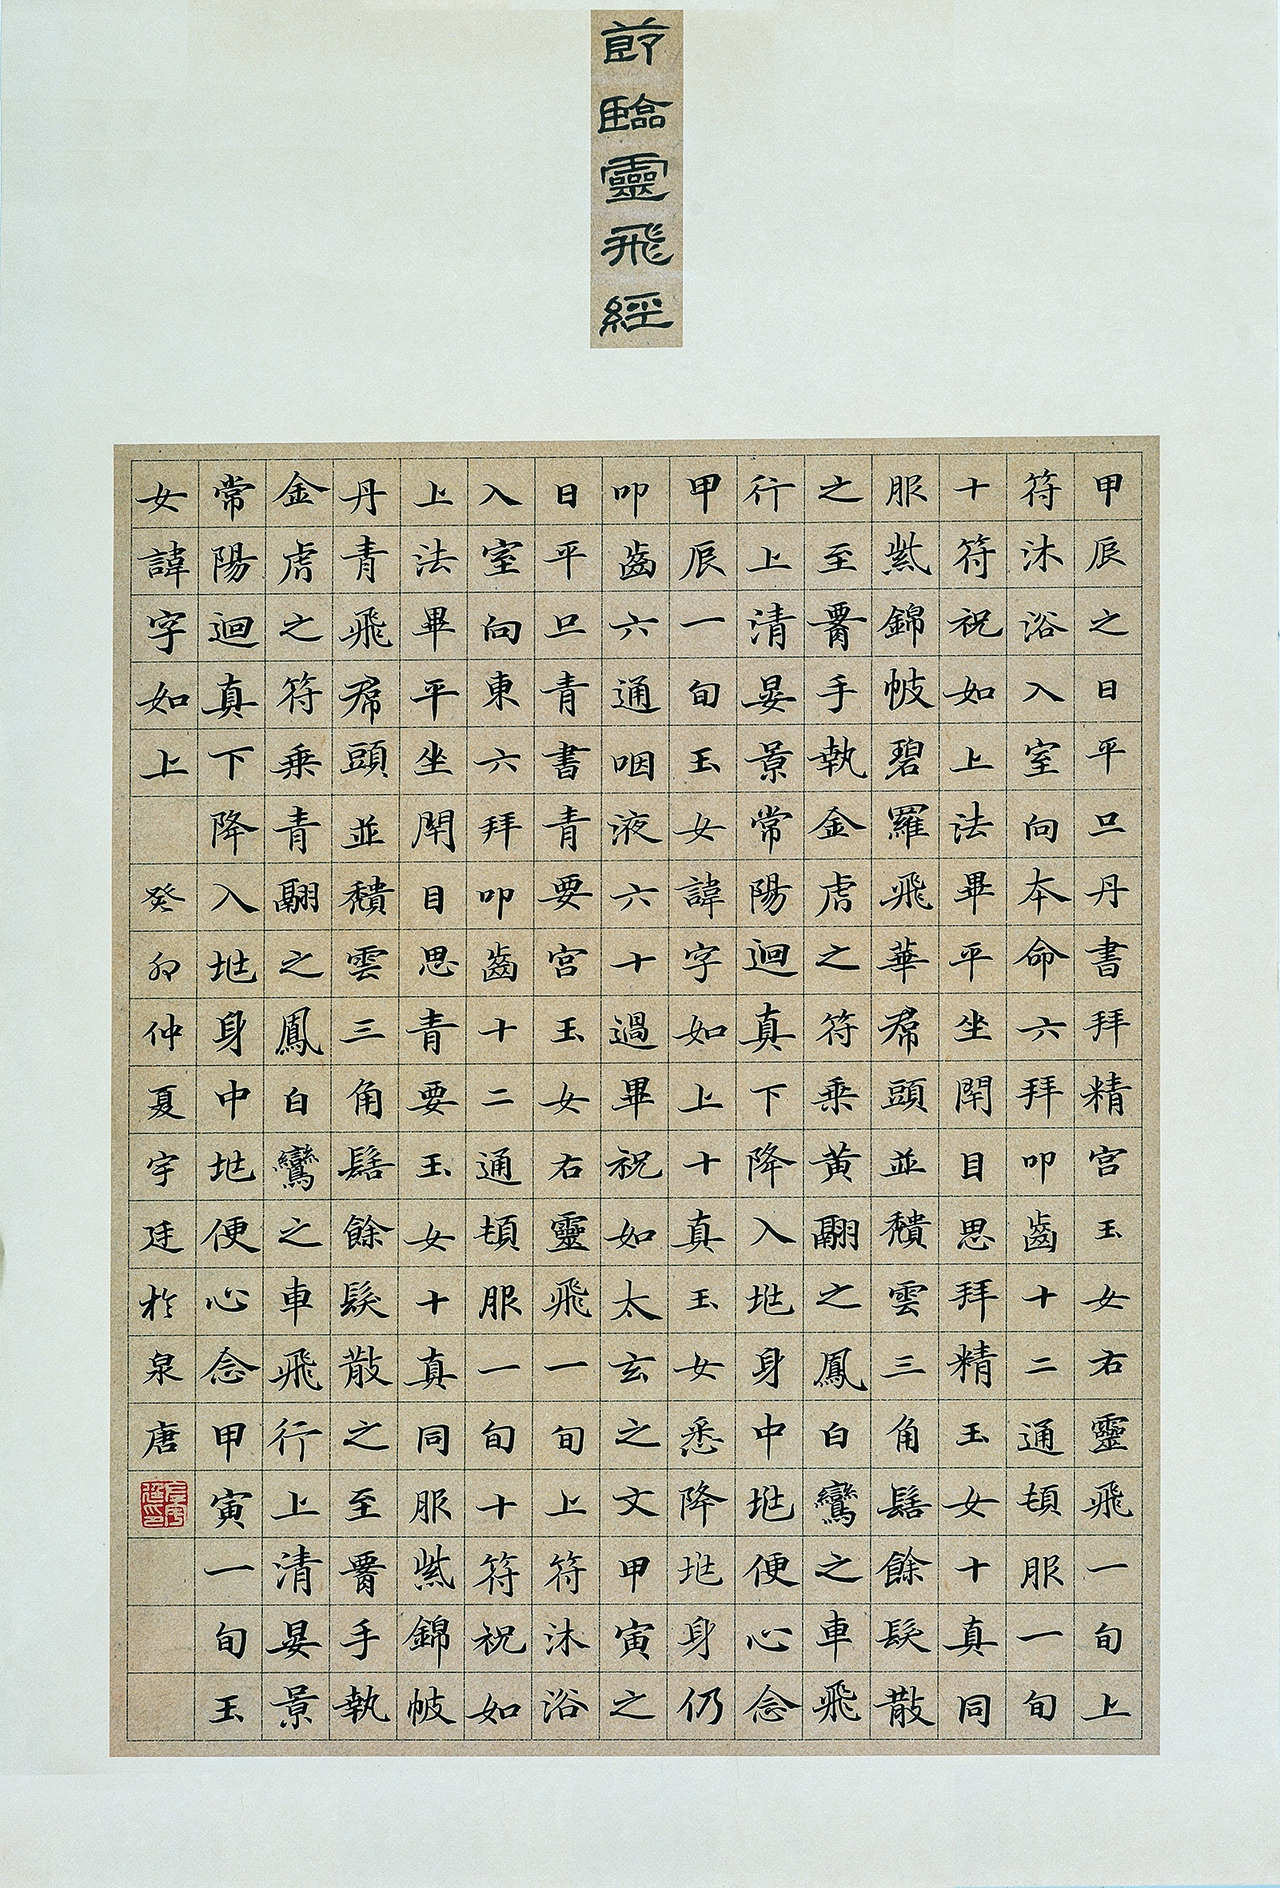 莭臨靈飛經
甲辰之日平旦丹書拜精宮玉女右靈飛一旬上
符沐浴入室向本命六拜叩齒十二通頓服一旬
十符祝如上法畢平坐閇目思拜精玉女十真同
服紫錦帔碧羅飛華帬頭並穨雲三角髻餘髮散
之至腰手執金虎之符乘黃翮之鳳白鸞之車飛
行上清晏景常陽迴真下降入兆身中兆便心念
甲辰一旬玉女諱字如上十真玉女悉降兆身仍
叩齒六通咽液六十過畢祝如太玄之文甲寅之
日平旦青書青要宮玉女右靈飛一旬上符沐浴
入室向東六拜叩齒十二通頓服一旬十符祝如
上法畢平坐閇目思青要玉女十真同服紫錦帔
丹青飛帬頭並穨雲三角髻餘髮散之至腰手執
金虎之符乘青翮之鳳白鸞之車飛行上清晏景
常陽迴真下降入兆身中兆便心念甲寅一旬玉
女諱字如上 癸卯仲夏宇廷於泉唐